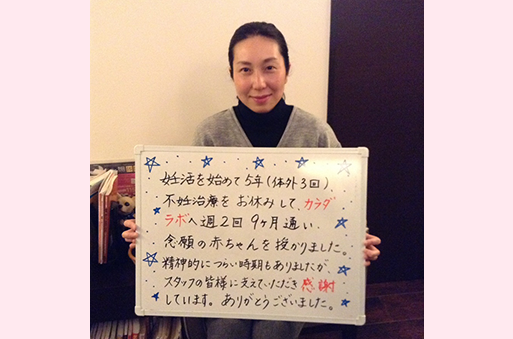 妊活を始めて5年(体外3回)
不妊治療をお休みして、カラダ
ラボへ週2回9ヶ月通い、
念願の赤ちゃんを授かりました。
精神的につらい時期もありましたが、
スタッフの皆様に支えていただき感謝
しています。ありがとうございました。